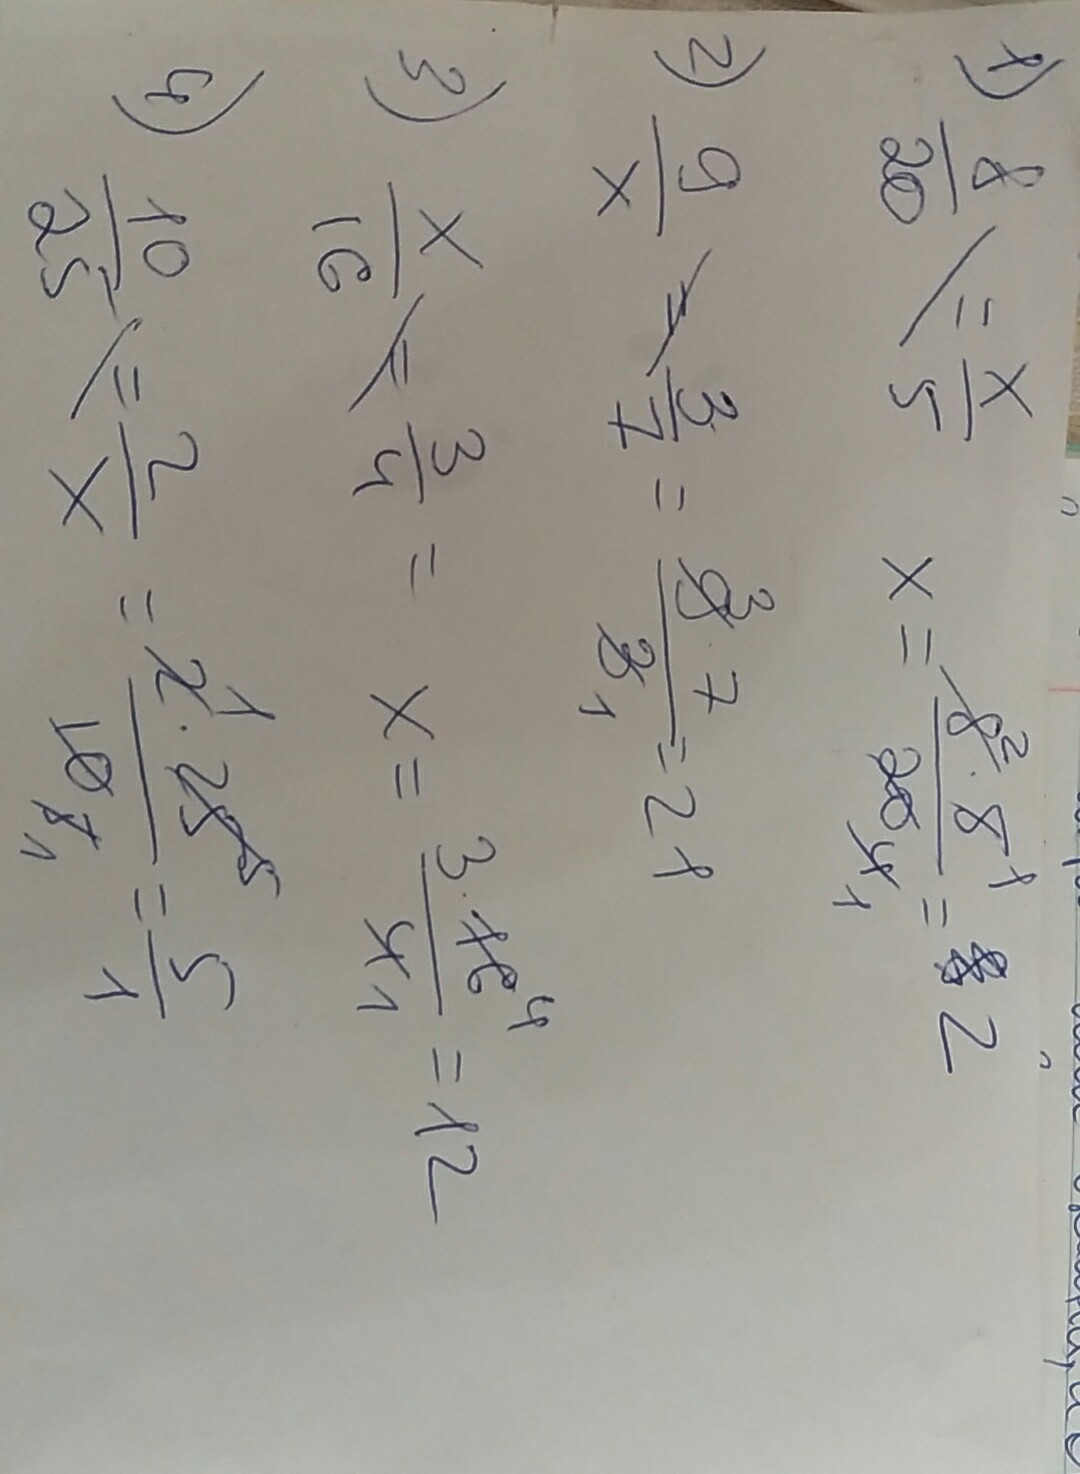 1) 8/20 = x/5 x = 8² · 5¹ / 20 4 1 = 2
2) 9/x = 3/7 = 9³ · 7 / 3 1 = 21
3) x/16 = 3/4 = x = 3 · 16⁴ / 4 1 = 12
4) 10/25 = 2/x = 2¹ · 25⁵ / 10 5 1 = 5/1